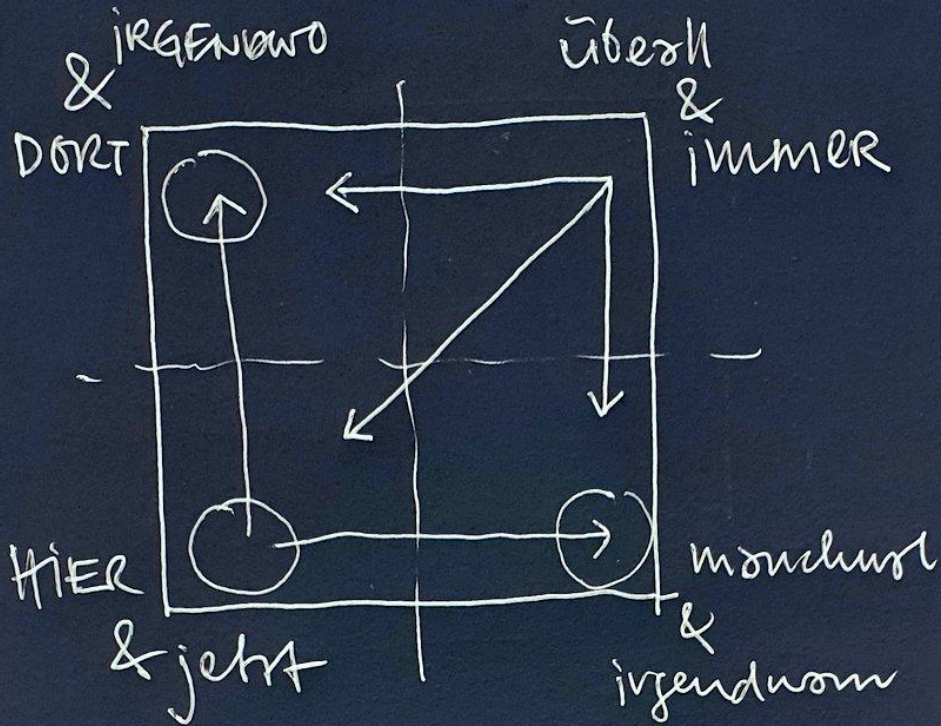 iRGENDWO
&
DORT
überall
&
immER
HiER
& jetzt
manchmal
&
irgendwann